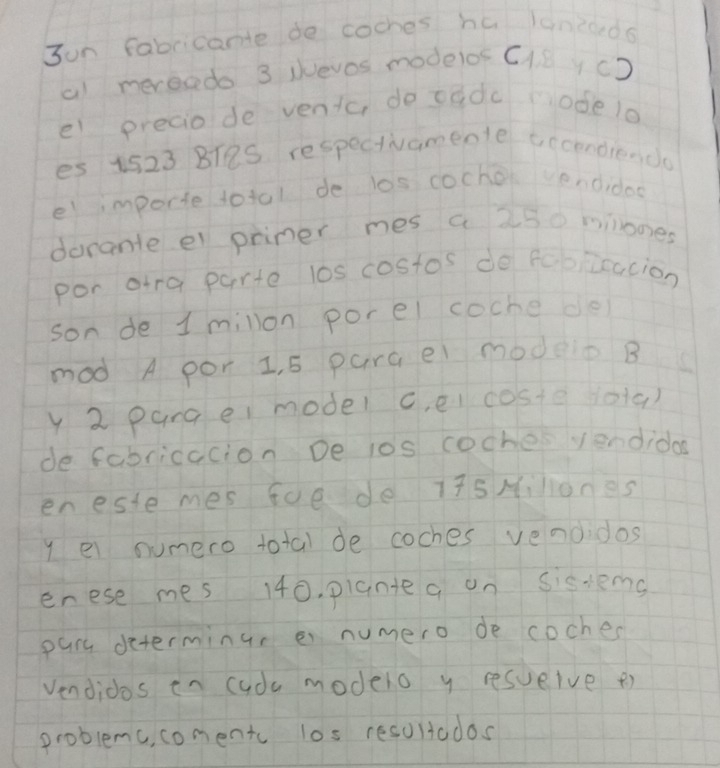 3un fabricante de coches ha lanzado
al mercado 3 Nuevos modelos C1,B y CD
el precio de venta, de cada modelo
es 1523 BTRS respectivamente accendiendo
el importe total de los coche vendidos
durante el primer mes a 250 millones
por otra parte los costos de fabricacion
son de 1 millon por el coche del
mod A por 1,5 para el modelo B
y 2 para el model c, el coste total
de fabricacion De los coches vendidos
en este mes fue de 175 Millones
y el numero total de coches vendidos
en ese mes 140. plantea un sistema
para determinar el numero de coches
vendidos en cada modelo y resuelve el
problema, comenta los resultados